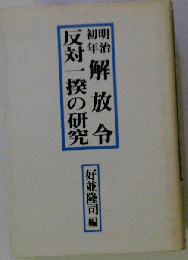 明治初年
解放令
反対一揆の研究
好並隆司 編